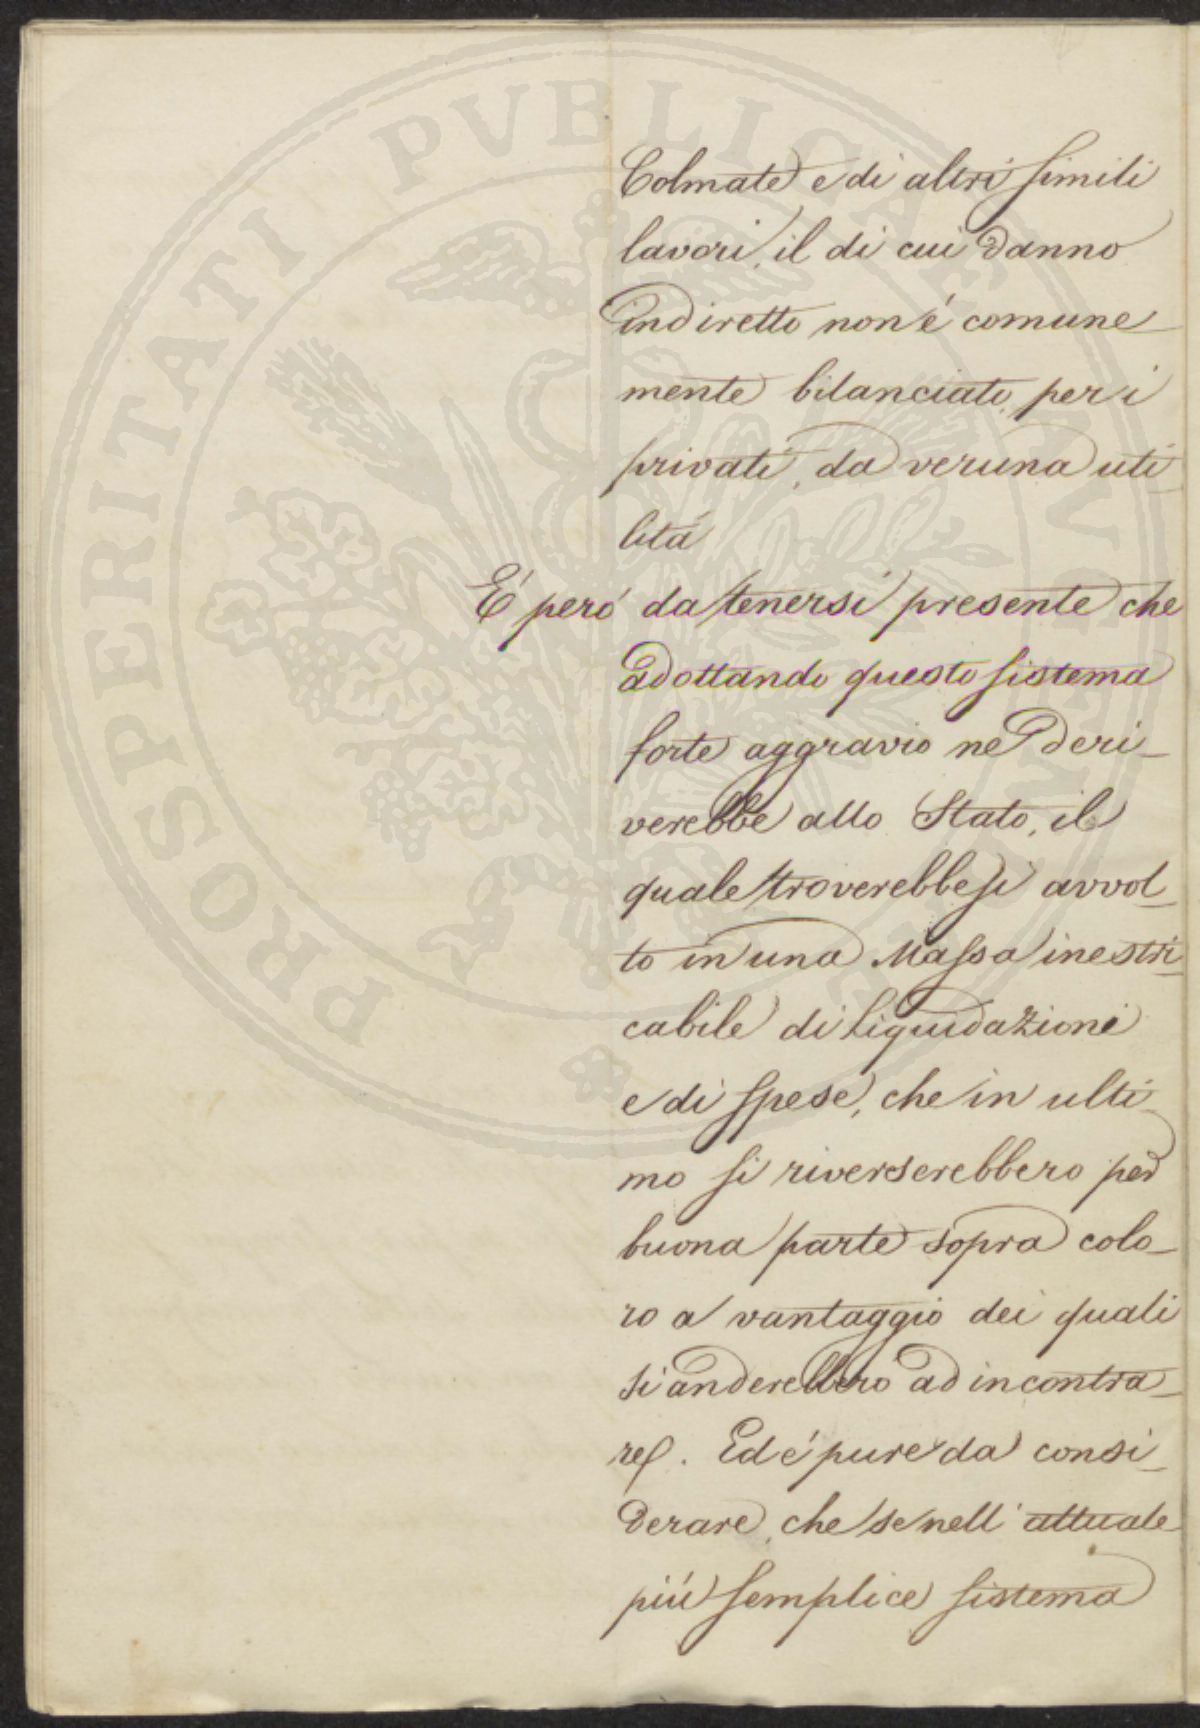 Colmate e di altri simili
lavori, il di cui danno
indiretto non é comune
mente bilanciato, per i
privati, da veruna uti_
litá
É peró da tenersi presente che
adottando questo sistema
forte aggravio ne deri_
verebbe allo Stato, il
quale troverebbesi avvol_
to in una Massa inestri_
cabile di liquidazioni
e di spese, che in ulti_
mo si riverserebbero per
buona parte sopra colo_
ro a vantaggio dei quali
si anderebbero ad incontra_
re. Ed é pure da consi_
derare, che se nell'attuale
piú semplice sistema
PROSPERITATI PVBLICAE AVGENDAE